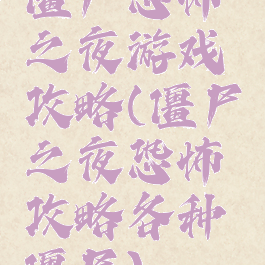 僵尸恐怖
之夜游戏
攻略(僵尸
之夜恐怖
攻略各种
僵尸)